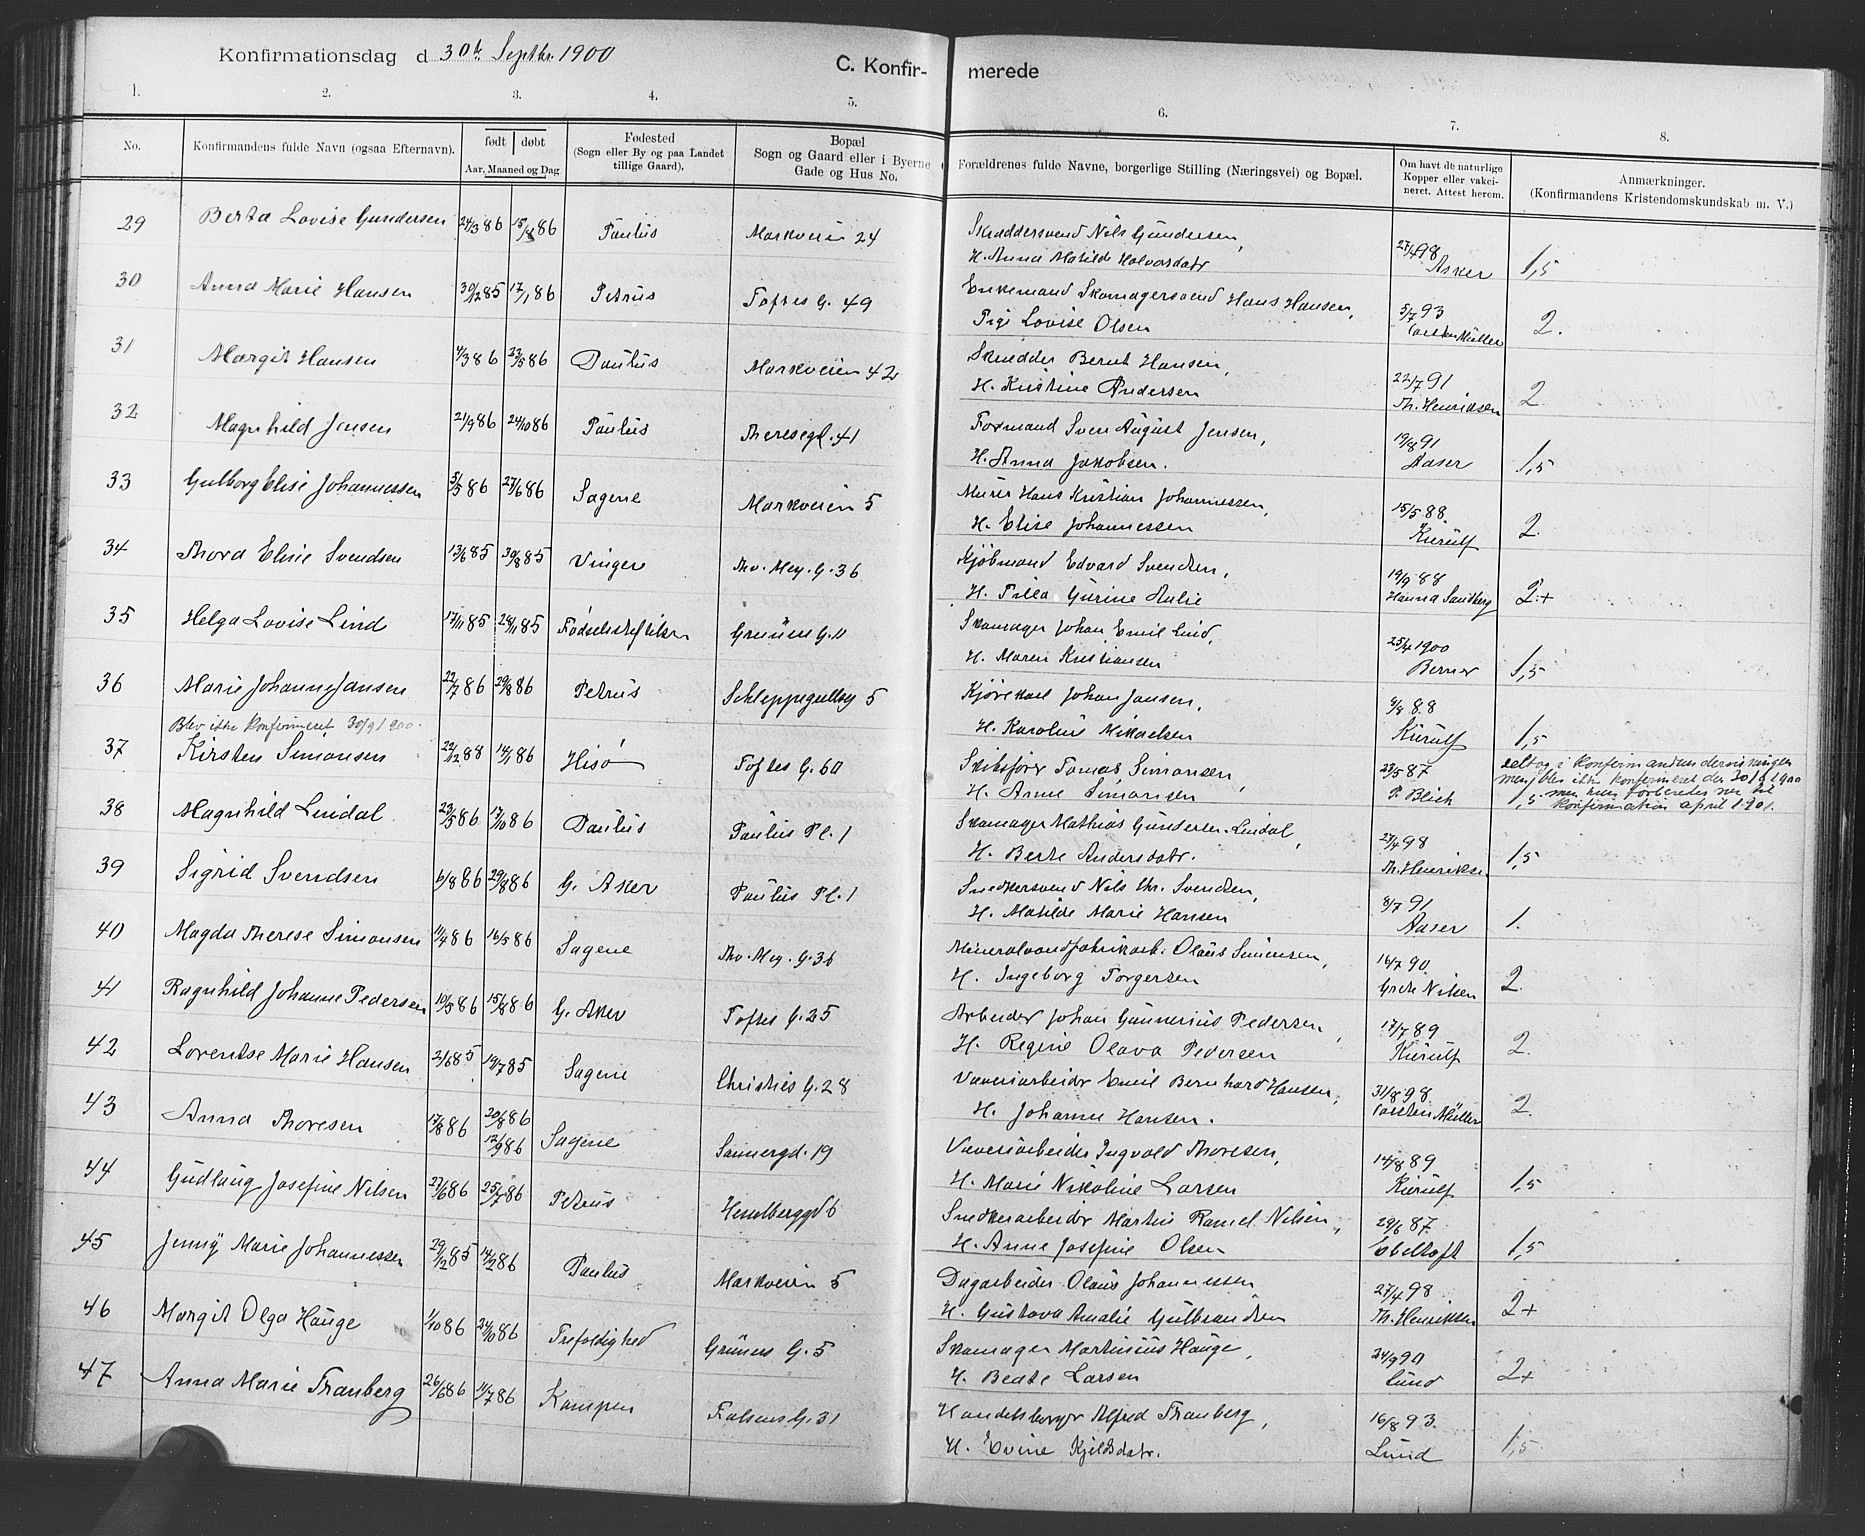 Konfirmationsdag d 30te Septbr. 1900
C. Konfir- merede
1. 2. 3. 4. 5. 6. 7. 8.
No.
Konfirmandens fulde Navn (ogsaa Efternavn).
født døbt
Aar, Maaned og Dag
Fødested
(Sogn eller By og paa Landet
tillige Gaard).
Bopæl
Sogn og Gaard eller i Byerne
Gade og Hus No.
Forældrenes fulde Navne, borgerlige Stilling (Næringsvei) og Bopæl.
Om havt de naturlige
Kopper eller vakci-
neret. Attest herom.
Anmærkninger.
(Konfirmandens Kristendomskundskab m. V.)
29 Berta Lovise Gundersen 24/3 86 15/8 86 Paulus Markveien 24 Skræddersvend Nils Gundersen,
H. Anna Matilde Halvorsdatr 27/4 98 Asker 1,5
30 Anna Marie Hansen 30/12 85 17/1 86 Petrus Toftes G. 49 Enkemand Skomagersvend Hans Hansen,
Pige Lovise Olsen 5/7 93 Carsten Müller 2.
31 Margit Hansen 4/3 86 23/5 86 Paulus Markveien 42 Skrædder Bernt Hansen,
H. Kristine Andersen 22/7 91 Th. Henriksen 2
32 Magnhild Jensen 21/9 86 24/10 86 Paulus Theresegd. 41 Formand Sven August Jensen,
H. Anna Jakobsen. 19/8 91 Aaser 1,5
33 Gulborg Elise Johannessen 5/5 86 27/6 86 Sagene Markveien 5 Murer Hans Kristian Johannessen,
H. Elise Johannessen 15/5 88. Kierulf 2.
34 Thora Elise Svendsen 13/6 85 30/8 85 Vinger Thv. Mey. G. 36 Kjøbmand Edvard Svendsen,
H. Gurine Aulie 19/9 88 Hanna Sandberg 2+
35 Helga Lovise Lind 17/11 85 28/11 85 Fødselsstiftelsen Grüners G. 11 Skomager Johan Emil Lind,
H. Maren Kristiansen 25/4 1900 Berner 1,5
36 Marie Johanne Jansen 22/7 86 29/8 86 Petrus Schleppegrellsg 5 Kjørekarl Johan Jansen,
Blev ikke konfirmeret 30/9 1900.
H. Karoline Mikaelsen 9/8 88 Kierulf 1,5
37 Kirsten Simonsen 22/12 88 14/1 86 Hisø Toftes G. 60 Skibsfører Tomas Simonsen,
H. Anne Simonsen 23/5 87 P. Blich 1,5
deltog i konfirmandundervisningen
men blev ikke konfirmeret den 30/9 1900
men hun forberedes nu til
konfirmation april 1901.
38 Magnhild Lindal 23/5 86 17/10 86 Paulus Paulus Pl. 1 Skomager Mathias Gundersen Lindal,
H. Berte Andersdatr. 27/4 98 Th. Henriksen 1,5
39 Sigrid Svendsen 6/8 86 29/8 86 G. Aker Paulus Pl. 1 Snedkersvend Nils Chr. Svendsen,
H. Matilde Marie Hansen 8/7 91 Aaser 1.
40 Magda Therese Simonsen 11/4 86 16/5 86 Sagene Thv. Mey. G. 36 Mineralvandfabrikarb. Olaus Simonsen,
H. Ingeborg Torgersen 16/7 90. Grete Nilsen 2.
41 Ragnhild Johanne Pedersen 10/5 86 15/8 86 G. Aker Toftes G. 25 Arbeider Johan Gunnerius Pedersen,
H. Regine Olava Pedersen 17/7 89 Kierulf 2
42 Lorentse Marie Hansen 2/6 85 19/7 85 Sagene Christies G. 28 Væveriarbeidr Emil Bernhard Hansen,
H. Johanne Hansen. 31/8 98 Carsten Müller 2.
43 Anna Thoresen 17/8 86 20/8 86 12/9 86 Sagene Sannergd. 19 Væveriarbeider Ingvald Thoresen,
H. Marie Nikoline Larsen 14/8 89 Kierulf 1,5
44 Gudlaug Josefine Nilsen 27/6 86 25/7 86 Petrus Heselberggd 6 Snedkerarbeidr Martin Ramel Nilsen,
H. Anne Josefine Olsen 29/6 87. Ebeltoft 1,5
45 Jenny Marie Johannessen 29/12 85 14/2 86 Paulus Markveien 5 Dagarbeider Olaus Johannessen
H. Gustava Amalie Gulbrandsen 27/4 98 Th. Henriksen 2+
46 Margit Olga Hauge 1/10 86 24/10 86 Trefoldighed Grüners G. 5 Skomager Martinius Hauge,
H. Beate Larsen 24/9 90 Lund 2+
47 Anna Marie Tranberg 26/6 86 11/7 86 Kampen Falsens G. 31 Handelsborgr Alfred Tranberg,
H. Evine Kjeldsdatr. 16/8 93. Lund 1,5